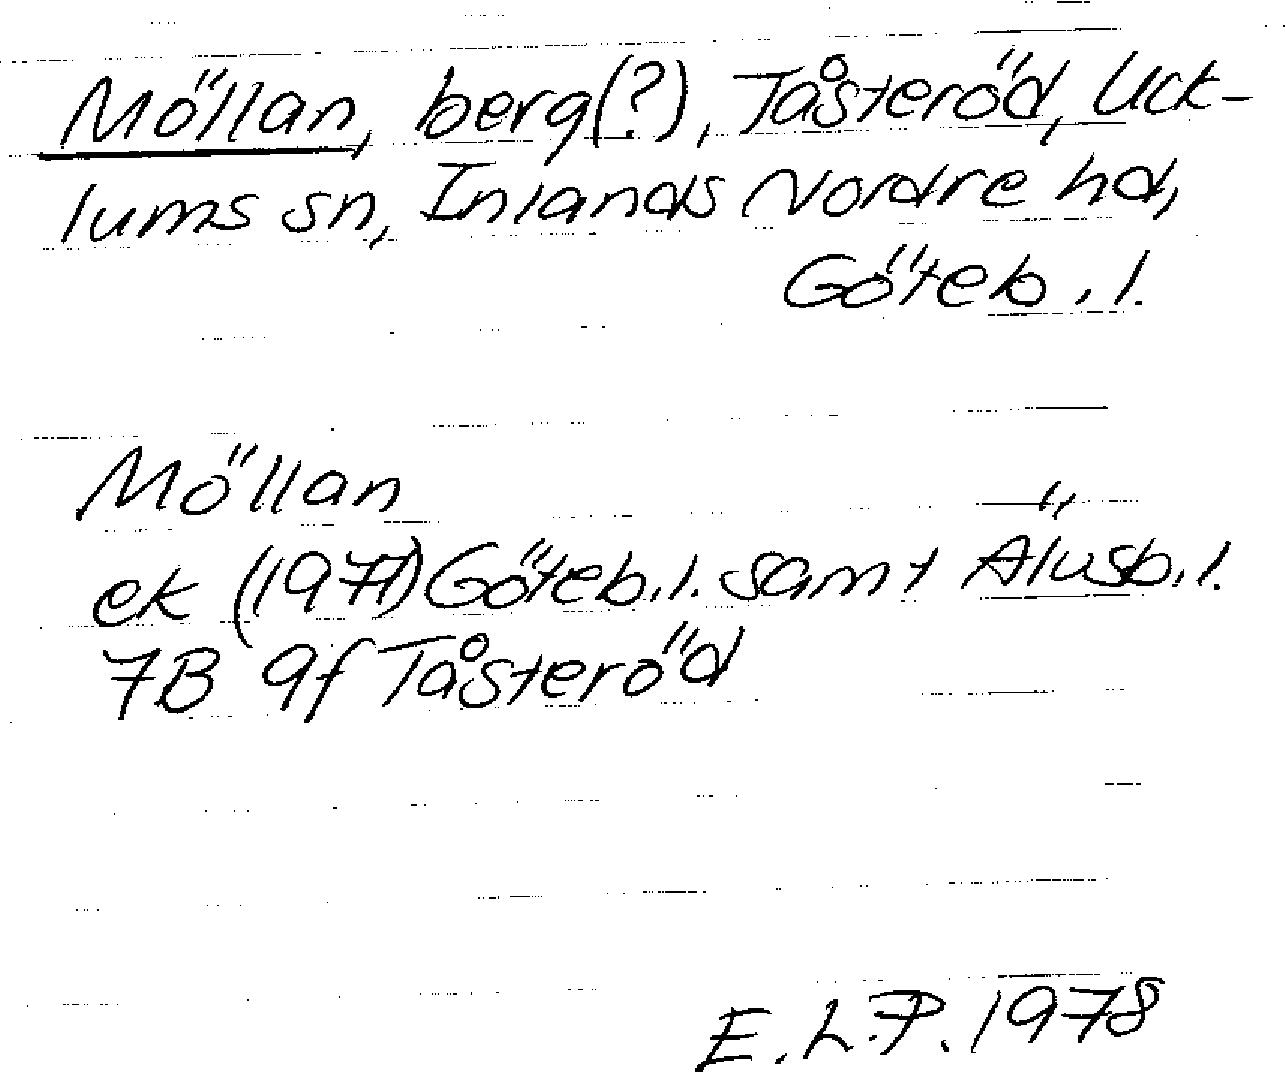 Möllan, berg(?), Tåsteröd, Uck-
lums sn, Inlands Nordre hd,
Göteb. l.
Möllan
ek (1977) Göteb. l. samt Älvsb. l.
7B 9f Tåsteröd
E. L. P. 1978